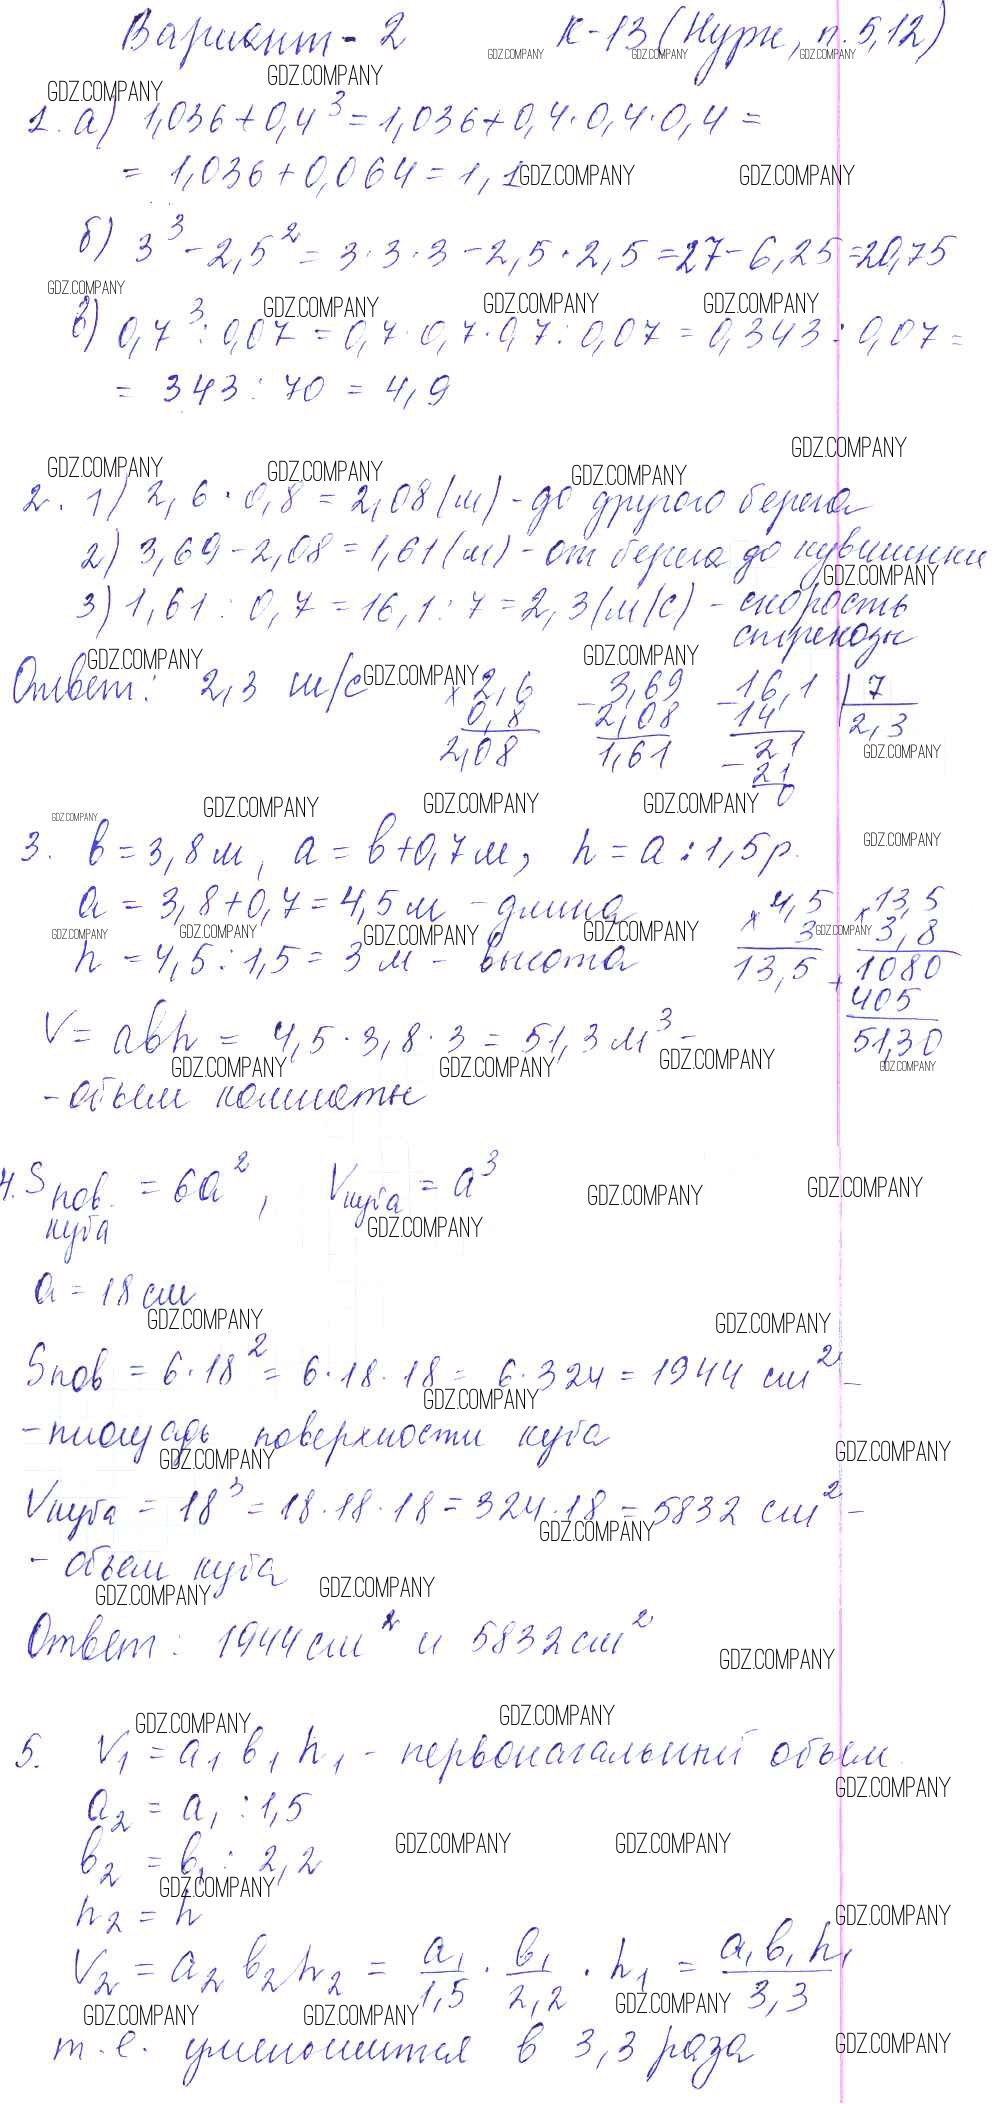 Вариант - 2 К-13 (Нурк, п. 5,12)
1. а) 1,036 + 0,4³ = 1,036 + 0,4 · 0,4 · 0,4 =
= 1,036 + 0,064 = 1,1
б) 3³ - 2,5² = 3 · 3 · 3 - 2,5 · 2,5 = 27 - 6,25 = 20,75
в) 0,7³ : 0,07 = 0,7 · 0,7 · 0,7 : 0,07 = 0,343 : 0,07 =
= 343 : 70 = 4,9
2. 1) 2,6 · 0,8 = 2,08 (м) - до другого берега
2) 3,69 - 2,08 = 1,61 (м) - от берега до кувшинки
3) 1,61 : 0,7 = 16,1 : 7 = 2,3 (м/с) - скорость
стрекозы
Ответ: 2,3 м/с
× 2,6 - 3,69 - 16,1 | 7
0,8 2,08 14 2,3
2,08 1,61 - 21
21
0
3. b = 3,8 м, a = b + 0,7 м, h = a : 1,5 р.
a = 3,8 + 0,7 = 4,5 м - длина × 4,5 × 13,5
h = 4,5 : 1,5 = 3 м - высота 3 3,8
13,5 + 1080
405
51,30
V = abh = 4,5 · 3,8 · 3 = 51,3 м³ -
- объем комнаты
4. Sпов. куба = 6a², Vкуба = a³
a = 18 см
Sпов = 6 · 18² = 6 · 18 · 18 = 6 · 324 = 1944 см² -
- площадь поверхности куба
Vкуба = 18³ = 18 · 18 · 18 = 324 · 18 = 5832 см² -
- объем куба
Ответ: 1944 см² и 5832 см²
5. V₁ = a₁ b₁ h₁ - первоначальный объем.
a₂ = a₁ : 1,5
b₂ = b₁ : 2,2
h₂ = h
V₂ = a₂ b₂ h₂ = a₁/1,5 · b₁/2,2 · h₁ = a₁ b₁ h₁/3,3
т.е. уменьшится в 3,3 раза
GDZ.COMPANY